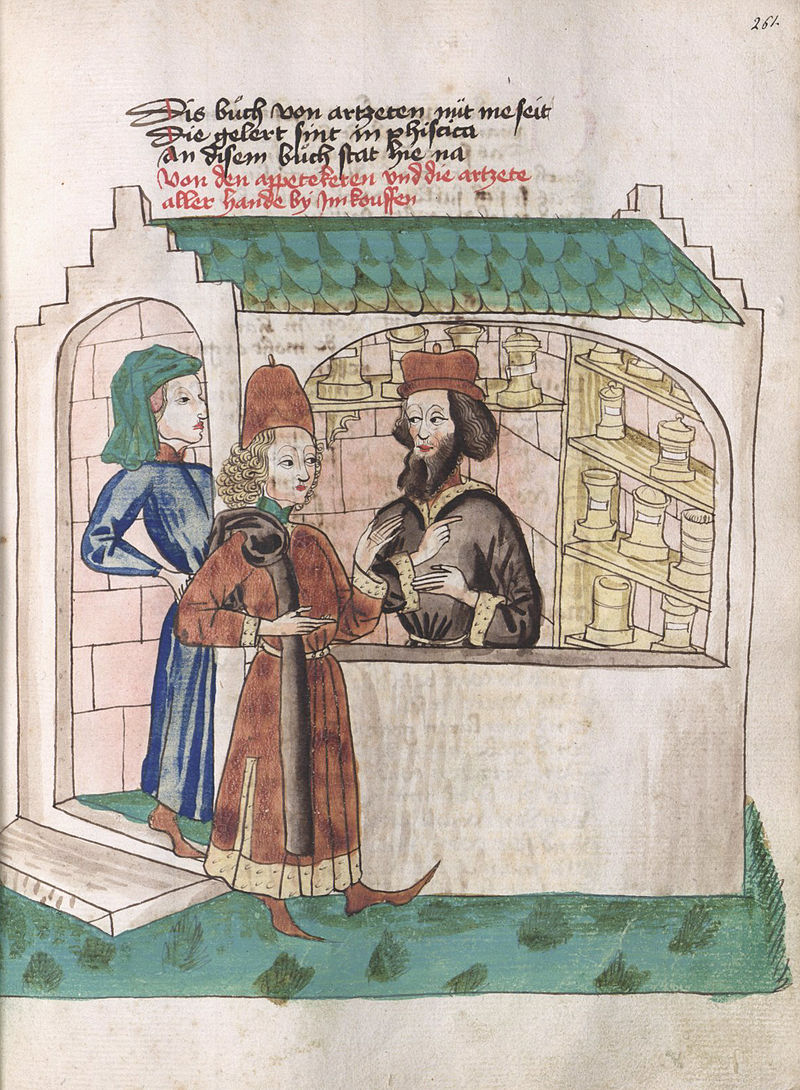 261.
Dis bůch von artzeten nüt me seit
Die gelert sint in phisicica
An disem bůch stat hie na
Von den appetekeren vnd die artzete
aller hande by jm kouffen